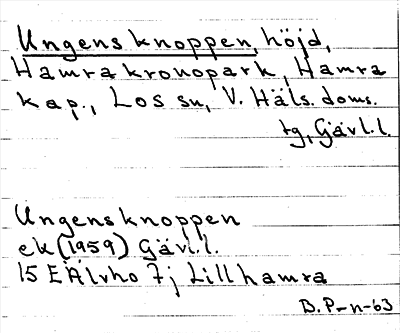 Ungensknoppen, höjd,
Hamra kronopark, Hamra
kap., Los sn, V. Häls. doms.
tg, Gävl.l.
Ungensknoppen
ek (1959) Gävl.l.
15 E Älvho 7j Lillhamra
B.P-n-63